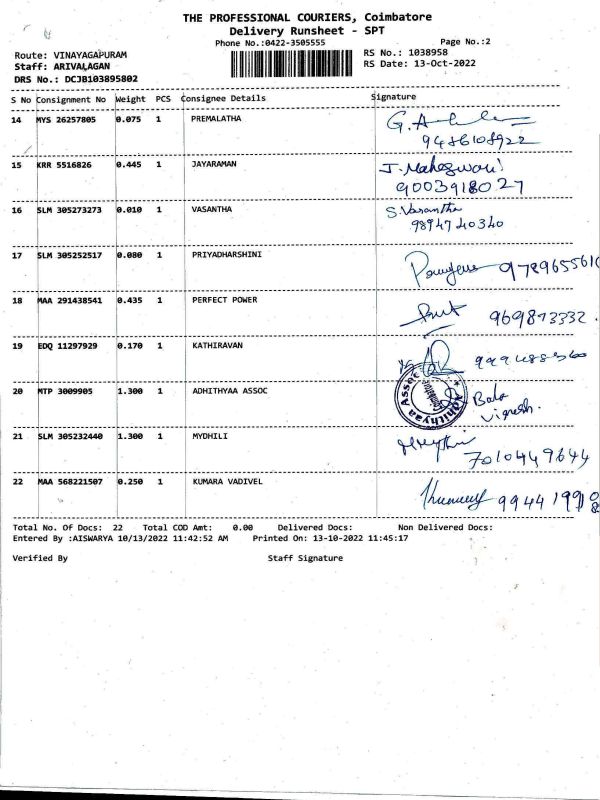 THE PROFESSIONAL COURIERS, Coimbatore
Delivery Runsheet - SPT
Phone No.:0422-3505555 Page No.:2
Route: VINAYAGAPURAM RS No.: 1038958
Staff: ARIVALAGAN RS Date: 13-Oct-2022
DRS No.: DCJB103895802
S No Consignment No Weight PCS Consignee Details Signature
14 MYS 26257805 0.075 1 PREMALATHA
9486108922
15 KRR 5516826 0.445 1 JAYARAMAN J. Maheswari
9003918027
16 SLM 305273273 0.010 1 VASANTHA S. Vasantha
9894740340
17 SLM 305252517 0.080 1 PRIYADHARSHINI 978965561
18 MAA 291438541 0.435 1 PERFECT POWER
19 EDQ 11297929 0.170 1 KATHIRAVAN
20 MTP 3009905 1.300 1 ADHITHYAA ASSOC Adhithyaa Assoc Coimbatore Bala
Vignesh.
21 SLM 305232440 1.300 1 MYDHILI
7010449644
22 MAA 568221507 0.250 1 KUMARA VADIVEL
Total No. Of Docs: 22 Total COD Amt: 0.00 Delivered Docs: Non Delivered Docs:
Entered By :AISWARYA 10/13/2022 11:42:52 AM Printed On: 13-10-2022 11:45:17
Verified By Staff Signature